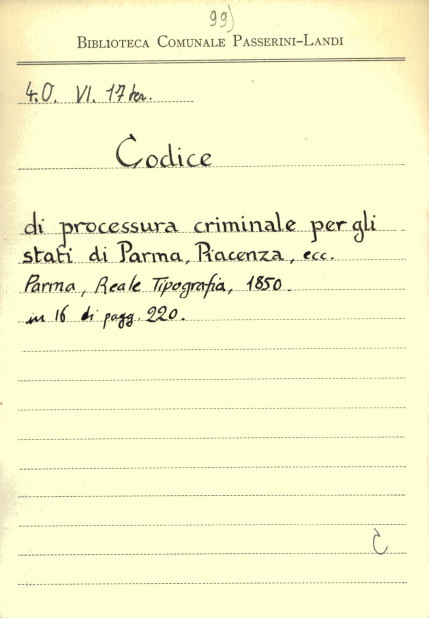 99)
BIBLIOTECA COMUNALE PASSERINI-LANDI
4.O. VI. 17 ter.
Codice
di processura criminale per gli
stati di Parma, Piacenza, ecc.
Parma, Reale Tipografia, 1850.
in 16 di pagg. 220.
C